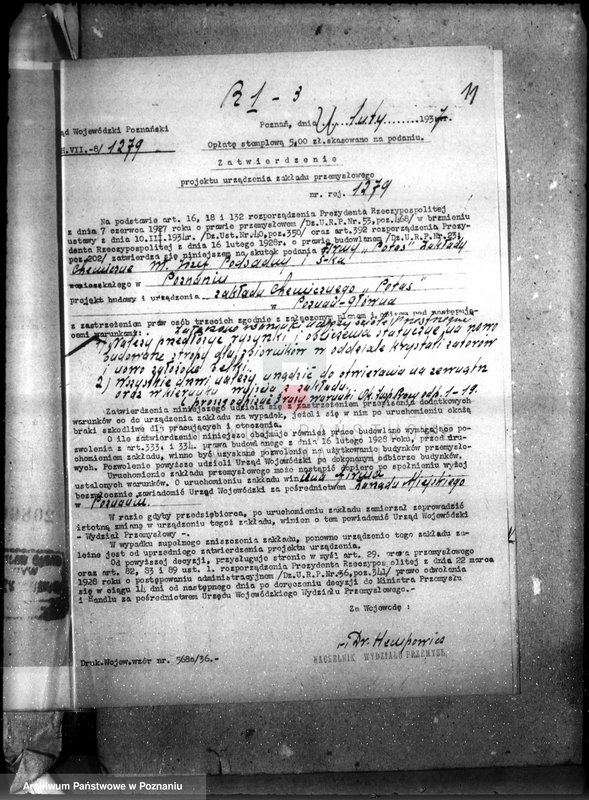 R 1 - 3
11
Poznań, dnia ... luty ... 1937 r.
ąd Wojewódzki Poznański
H.VII.-8/1279
Opłatę stemplową 5,00 zł.skasowano na podaniu.
Zatwierdzenie
projektu urządzenia zakładu przemysłowego
nr. rej. 1279
Na podstawie art. 16, 18 i 132 rozporządzenia Prezydenta Rzeczypospolitej
z dnia 7 czerwca 1927 roku o prawie przemysłowem /Dz.U.R.P.Nr.53,poz.468/ w brzmieniu
ustawy z dnia 10.III.1934r. /Dz.Ust.Nr.40,poz.350/ oraz art.392 rozporządzenia Prezy-
denta Rzeczypospolitej z dnia 16 lutego 1928r. o prawie budowlanem /Dz.U.R.P.Nr.23,
poz.202/ zatwierdza się niniejszem na skutek podania firmy "Potas" Zakłady
Chemiczne Józef Podsadny i S-ka
zamieszkałego w Poznaniu
projekt budowy i urządzenia zakładu Chemicznego "Potas"
w Poznań-Główna
z zastrzeżeniem praw osób trzecich zgodnie z załączonym planem i opisem pod następują-
cemi warunkami:
należy przedłożyć rysunki i obliczenia statyczne na nowo
budowane stropy dla zbiorników w oddziale krystalizatorów
i nowo założone belki.
2) Wszystkie drzwi należy urządzić do otwierania na zewnątrz
oraz w kierunku wyjścia z zakładu.
Zatwierdzenia niniejszego udziela się z zastrzeżeniem przepisania dodatkowych
warunków co do urządzenia zakładu na wypadek, jeżeli się w nim po uruchomieniu okażą
braki szkodliwe dla pracujących i otoczenia.
O ile zatwierdzenie niniejsze obejmuje również prace budowlane wymagające po-
zwolenia z art.333 i 334 prawa budowlanego z dnia 16 lutego 1928 roku, przed uru-
chomieniem zakładu, winno być uzyskane pozwolenie na użytkowanie budynków przemysło-
wych. Pozwolenie powyższe udzieli Urząd Wojewódzki po dokonanym odbiorze budynków.
Uruchomienie zakładu przemysłowego może nastąpić dopiero po spełnieniu wyżej
ustalonych warunków. O uruchomieniu zakładu winna firma
bezzwłocznie zawiadomić Urząd Wojewódzki za pośrednictwem Zarządu Miejskiego
w Poznaniu.
W razie gdyby przedsiębiorca, po uruchomieniu zakładu zamierzał zaprowadzić
istotną zmianę w urządzeniu tegoż zakładu, winien o tem powiadomić Urząd Wojewódzki
- Wydział Przemysłowy -
W wypadku zupełnego zniszczenia zakładu, ponowne urządzenie tego zakładu za-
leżne jest od uprzedniego zatwierdzenia projektu urządzenia.
Od powyższej decyzji, przysługuje stronie w myśl art. 29. prawa przemysłowego
oraz art. 82, 83 i 89 ust. 1. rozporządzenia Prezydenta Rzeczypospolitej z dnia 22 marca
1928 roku o postępowaniu administracyjnem /Dz.U.R.P.Nr.36,poz.341/ prawo odwołania
się w ciągu 14 dni od następnego dnia po doręczeniu decyzji do Ministra Przemysłu
i Handlu za pośrednictwem Urzędu Wojewódzkiego Wydziału Przemysłowego.-
Za Wojewodę :
Dr.
NACZELNIK WYDZIAŁU PRZEMYSŁ.
Druk.Wojew.wzór nr. 568a/36.-
Archiwum Państwowe w Poznaniu